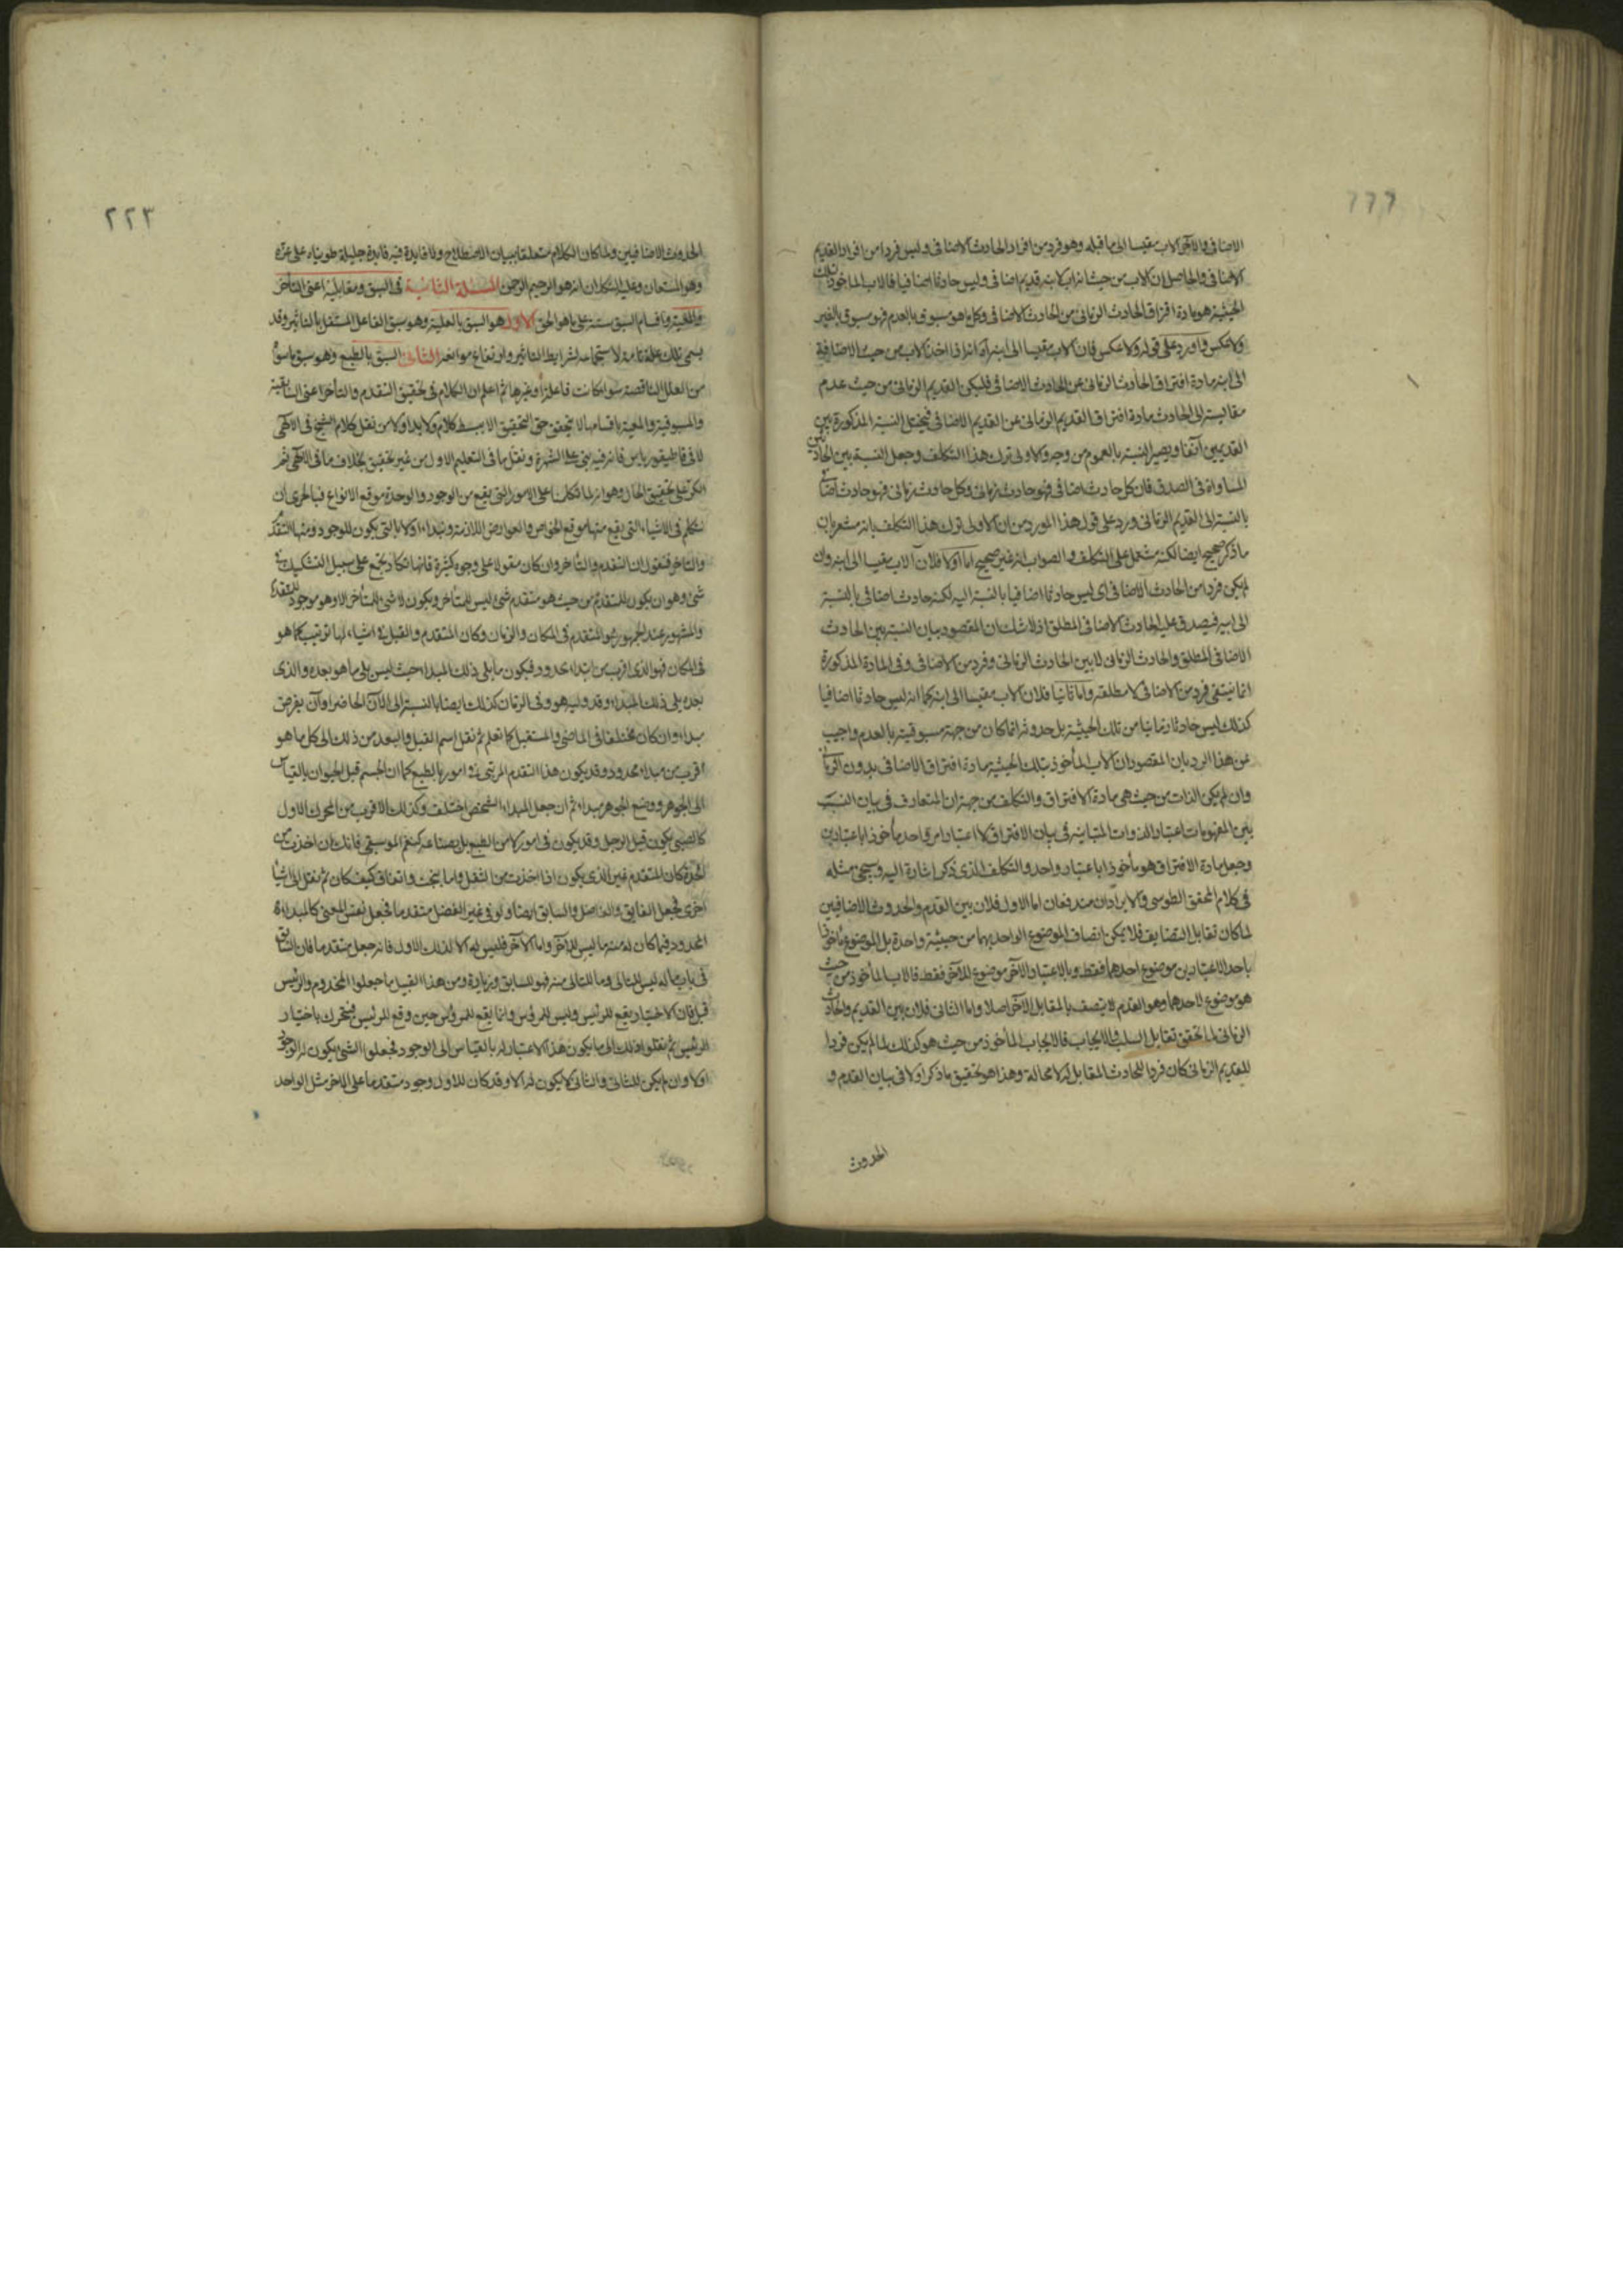 ٢٢٢
الاضافى والآخر كالاب مقيسا الى ما قبله وهو فرد من افراد الحادث الاضافى وليس فردا من افراد القديم
الاضافى والحاصل ان الاب من حيث انه اب لابنه قديم اضافى وليس حادثا اضافيا فالاب المأخوذ بتلك
الحيثية هو مادة افتراق الحادث الزمانى من الحادث الاضافى وكل ما هو مسبوق بالعدم فهو مسبوق بالغير
ولا عكس واورد على قوله ولا عكس فان الاب مقيسا الى ابنه اذا اخذ الاب من حيث الاضافة
الى ابنه مادة افتراق الحادث الزمانى عن الحادث الاضافى فليكن القديم الزمانى من حيث عدم
مقايسته الى الحادث مادة افتراق القديم الزمانى عن القديم الاضافى فيختل النسبة المذكورة بين
القديمين آنفا ويصير النسبة بالعموم من وجه والاولى ترك هذا التكلف وجعل النسبة بين الحادثين
المساواة فى الصدق فان كل حادث اضافى فهو حادث زمانى وكل حادث زمانى فهو حادث اضافى
بالنسبة الى القديم الزمانى ورد على قول هذا المورد من ان الاولى ترك هذا التكلف بانه مشعر بان
ما ذكر صحيح ايضا لكنه مشتمل على التكلف والصواب انه غير صحيح اما اولا فلان الاب مقيسا الى ابنه وان
لم يكن فردا من الحادث الاضافى اى ليس حادثا اضافيا بالنسبة اليه لكنه حادث اضافى بالنسبة
الى ابيه فيصدق عليه الحادث الاضافى المطلق اذ لا شك ان المقصود بيان النسبة بين الحادث
الاضافى المطلق والحادث الزمانى لا بين الحادث الزمانى وفرد من الاضافى وفى المادة المذكورة
انما ينتفى فرد من الاضافى لا مطلقه واما ثانيا فلان الاب مقيسا الى ابنه كما انه ليس حادثا اضافيا
كذلك ليس حادثا زمانيا من تلك الحيثية بل حدوثه انما كان من جهة مسبوقيته بالعدم واجيب
عن هذا الرد بان المقصود ان الاب المأخوذ بتلك الحيثية مادة افتراق الاضافى بدون الزمانى
وان لم يكن الذات من حيث هى مادة الافتراق والتكلف من جهة ان المتعارف فى بيان النسب
بين المفهومات اعتبار الذوات المتباينة فى بيان الافتراق لا اعتبار امر واحد مأخوذا باعتبارين
وجعل مادة الافتراق هو مأخوذا باعتبار واحد والتكلف الذى ذكر اشارة اليه وسيجئ مثله
فى كلام المحقق الطوسى والايرادان مندفعان اما الاول فلان بين القدم والحدوث الاضافيين
لما كان تقابل التضايف فلا يمكن اتصاف الموضوع الواحد بهما من حيثية واحدة بل الموضوع مأخوذا
باحد الاعتبارين موضوع احدهما فقط وبالاعتبار الآخر موضوع للآخر فقط فالاب المأخوذ من حيث
هو موضوع لاحدهما وهو القدم لا يتصف بالمقابل الآخر اصلا واما الثانى فلان بين القديم والحادث
الزمانى لما تحقق تقابل السلب والايجاب فالايجاب المأخوذ من حيث هو كذلك لما لم يكن فردا
للقديم الزمانى كان فردا للحادث المقابل له لا محالة وهذا هو تحقيق ما ذكر اولا فى بيان القدم و
الحدوث
٢٢٣
الحدوث الاضافيين ولما كان الكلام متعلقا ببيان الاصطلاح ولا فايدة فيه فايدة جليلة طويناه على غره
وهو المستعان وعليه التكلان انه هو الرحيم الرحمن المسئلة الثانية فى السبق ومقابليه اعنى التأخر
والمعية واقسام السبق ستة على ما هو الحق الاول هو السبق بالعلية وهو سبق الفاعل المستقل بالتاثير وقد
يسمى تلك علة تامة لاستجماعه لشرايط التاثير وارتفاع موانعه الثانى السبق بالطبع وهو سبق ما سوى
من العلل الناقصة سواء كانت فاعلة او غيرها ثم اعلم ان الكلام فى تحقيق التقدم والتأخر اعنى السابقية
والمسبوقية والمعية باقسامها لا يتحقق حق التحقيق الا ببسط كلام ولا بد اولا من نقل كلام الشيخ فى الالهى
لا فى قاطيقورياس فانه فيه بنى على الشهرة ونقل ما فى التعليم الاول من غير تحقيق بخلاف ما فى الالهى ثم
الكر على تحقيق الحال وهو انه لما تكلمنا على الامور التى يقع من الوجود والوحدة موقع الانواع فبالحرى ان
نتكلم فى الاشياء التى يقع منها موقع الخواص والعوارض اللازمة ونبدا اولا بالتى يكون للوجود ومنها التقدم
والتأخر فنقول ان التقدم والتأخر وان كان مقولا على وجوه كثيرة فانها تكاد تجتمع على سبيل التشكيك فى
شئ وهو ان يكون للمتقدم من حيث هو متقدم شئ ليس للمتأخر ويكون لا شئ للمتأخر الا وهو موجود للمتقدم
والمشهور عند الجمهور هو المتقدم فى المكان والزمان وكان المتقدم والقبل فى اشياء لها ترتيب كما هو
فى المكان فهو الذى اقرب من ابتداء محدود فيكون ما يلى ذلك المبداء حيث ليس يلى ما هو بعده والذى
بعده يلى ذلك المبداء وقد وليه هو وفى الزمان كذلك ايضا بالنسبة الى الآن الحاضر او آن يفرض
مبداء وان كان مختلفا فى الماضى والمستقبل كما تعلم ثم نقل اسم القبل والبعد من ذلك الى كل ما هو
اقرب من مبداء محدود وقد يكون هذا التقدم المرتبى فى امور بالطبع كما ان الجسم قبل الحيوان بالقياس
الى الجوهر ووضع الجوهر مبداء ثم ان جعل المبداء الشخص اختلف وكذلك الاقرب من المحرك الاول
كالصبى يكون قبل الرجل وقد يكون فى امور لا من الطبع بل بصناعة كنغم الموسيقى فانك ان اخذت من
الحدة كان المتقدم غير الذى يكون اذا اخذت من الثقل واما ببخت واتفاق كيف كان ثم نقل الى اشياء
اخرى فجعل الفايق والفاضل والسابق ايضا ولو فى غير الفضل متقدما فجعل نفس المعنى كالمبداء
المحدود فما كان له منه ما ليس للآخر واما الآخر فليس له الا لذلك الاول فانه جعل متقدما فان السابق
فى باب ما له ليس للتالى وما للتالى منه فهو للسابق وزيادة ومن هذا القبيل ما جعلوا المخدوم والرئيس
قبل فان الاختيار يقع للرئيس وليس للمرؤس وانما يقع للمرؤس حين وقع للرئيس فيتحرك باختيار
الرئيس ثم نقلوا ذلك الى ما يكون هذا الاعتبار له بالقياس الى الوجود فجعلوا الشئ يكون له الوجود
اولا وان لم يكن للثانى والثانى لا يكون له الا وقد كان للاول وجود متقدما على الآخر مثل الواحد